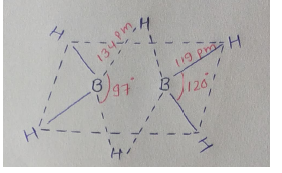 H
H
134 pm
119 pm
H
B
97°
B
120°
H
H
H